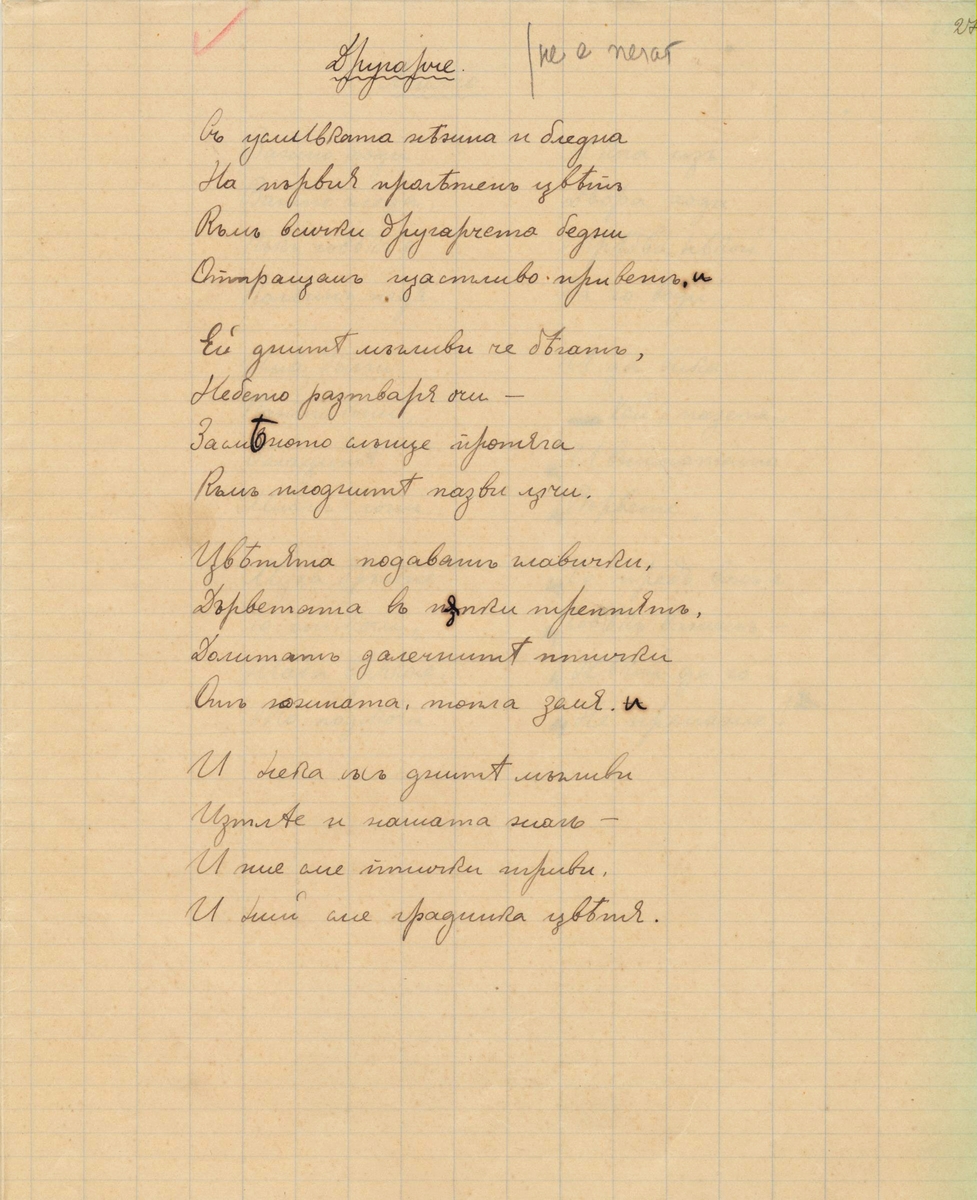 27
Другарче.
не е печат
Съ усмивката нѣжна и бледна
На първия пролѣтенъ цвѣтъ
Къмъ всички другарчета бедни
Отпращамъ щастливо приветъ. и
Ей днитѣ мъгливи че бѣгатъ,
Небето разтваря очи —
Засмѣното слънце протяга
Къмъ плоднитѣ пазви лъчи.
Цвѣтята подаватъ главички,
Дърветата въ пъпки трептятъ,
Долитатъ далечнитѣ птички
Отъ южната, топла земя. и
И нека съсъ днитѣ мъгливи
Изтлѣе и нашата жаль —
И ние сме птички игриви,
И ний сме градинка цвѣтя.